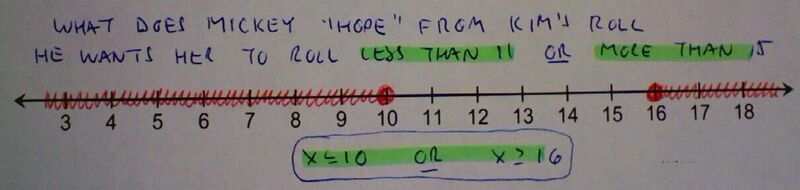 WHAT DOES MICKEY "HOPE" FROM KIM'S ROLL
HE WANTS HER TO ROLL LESS THAN 11 OR MORE THAN 15
3 4 5 6 7 8 9 10 11 12 13 14 16 17 18
X ≤ 10 OR X ≥ 16